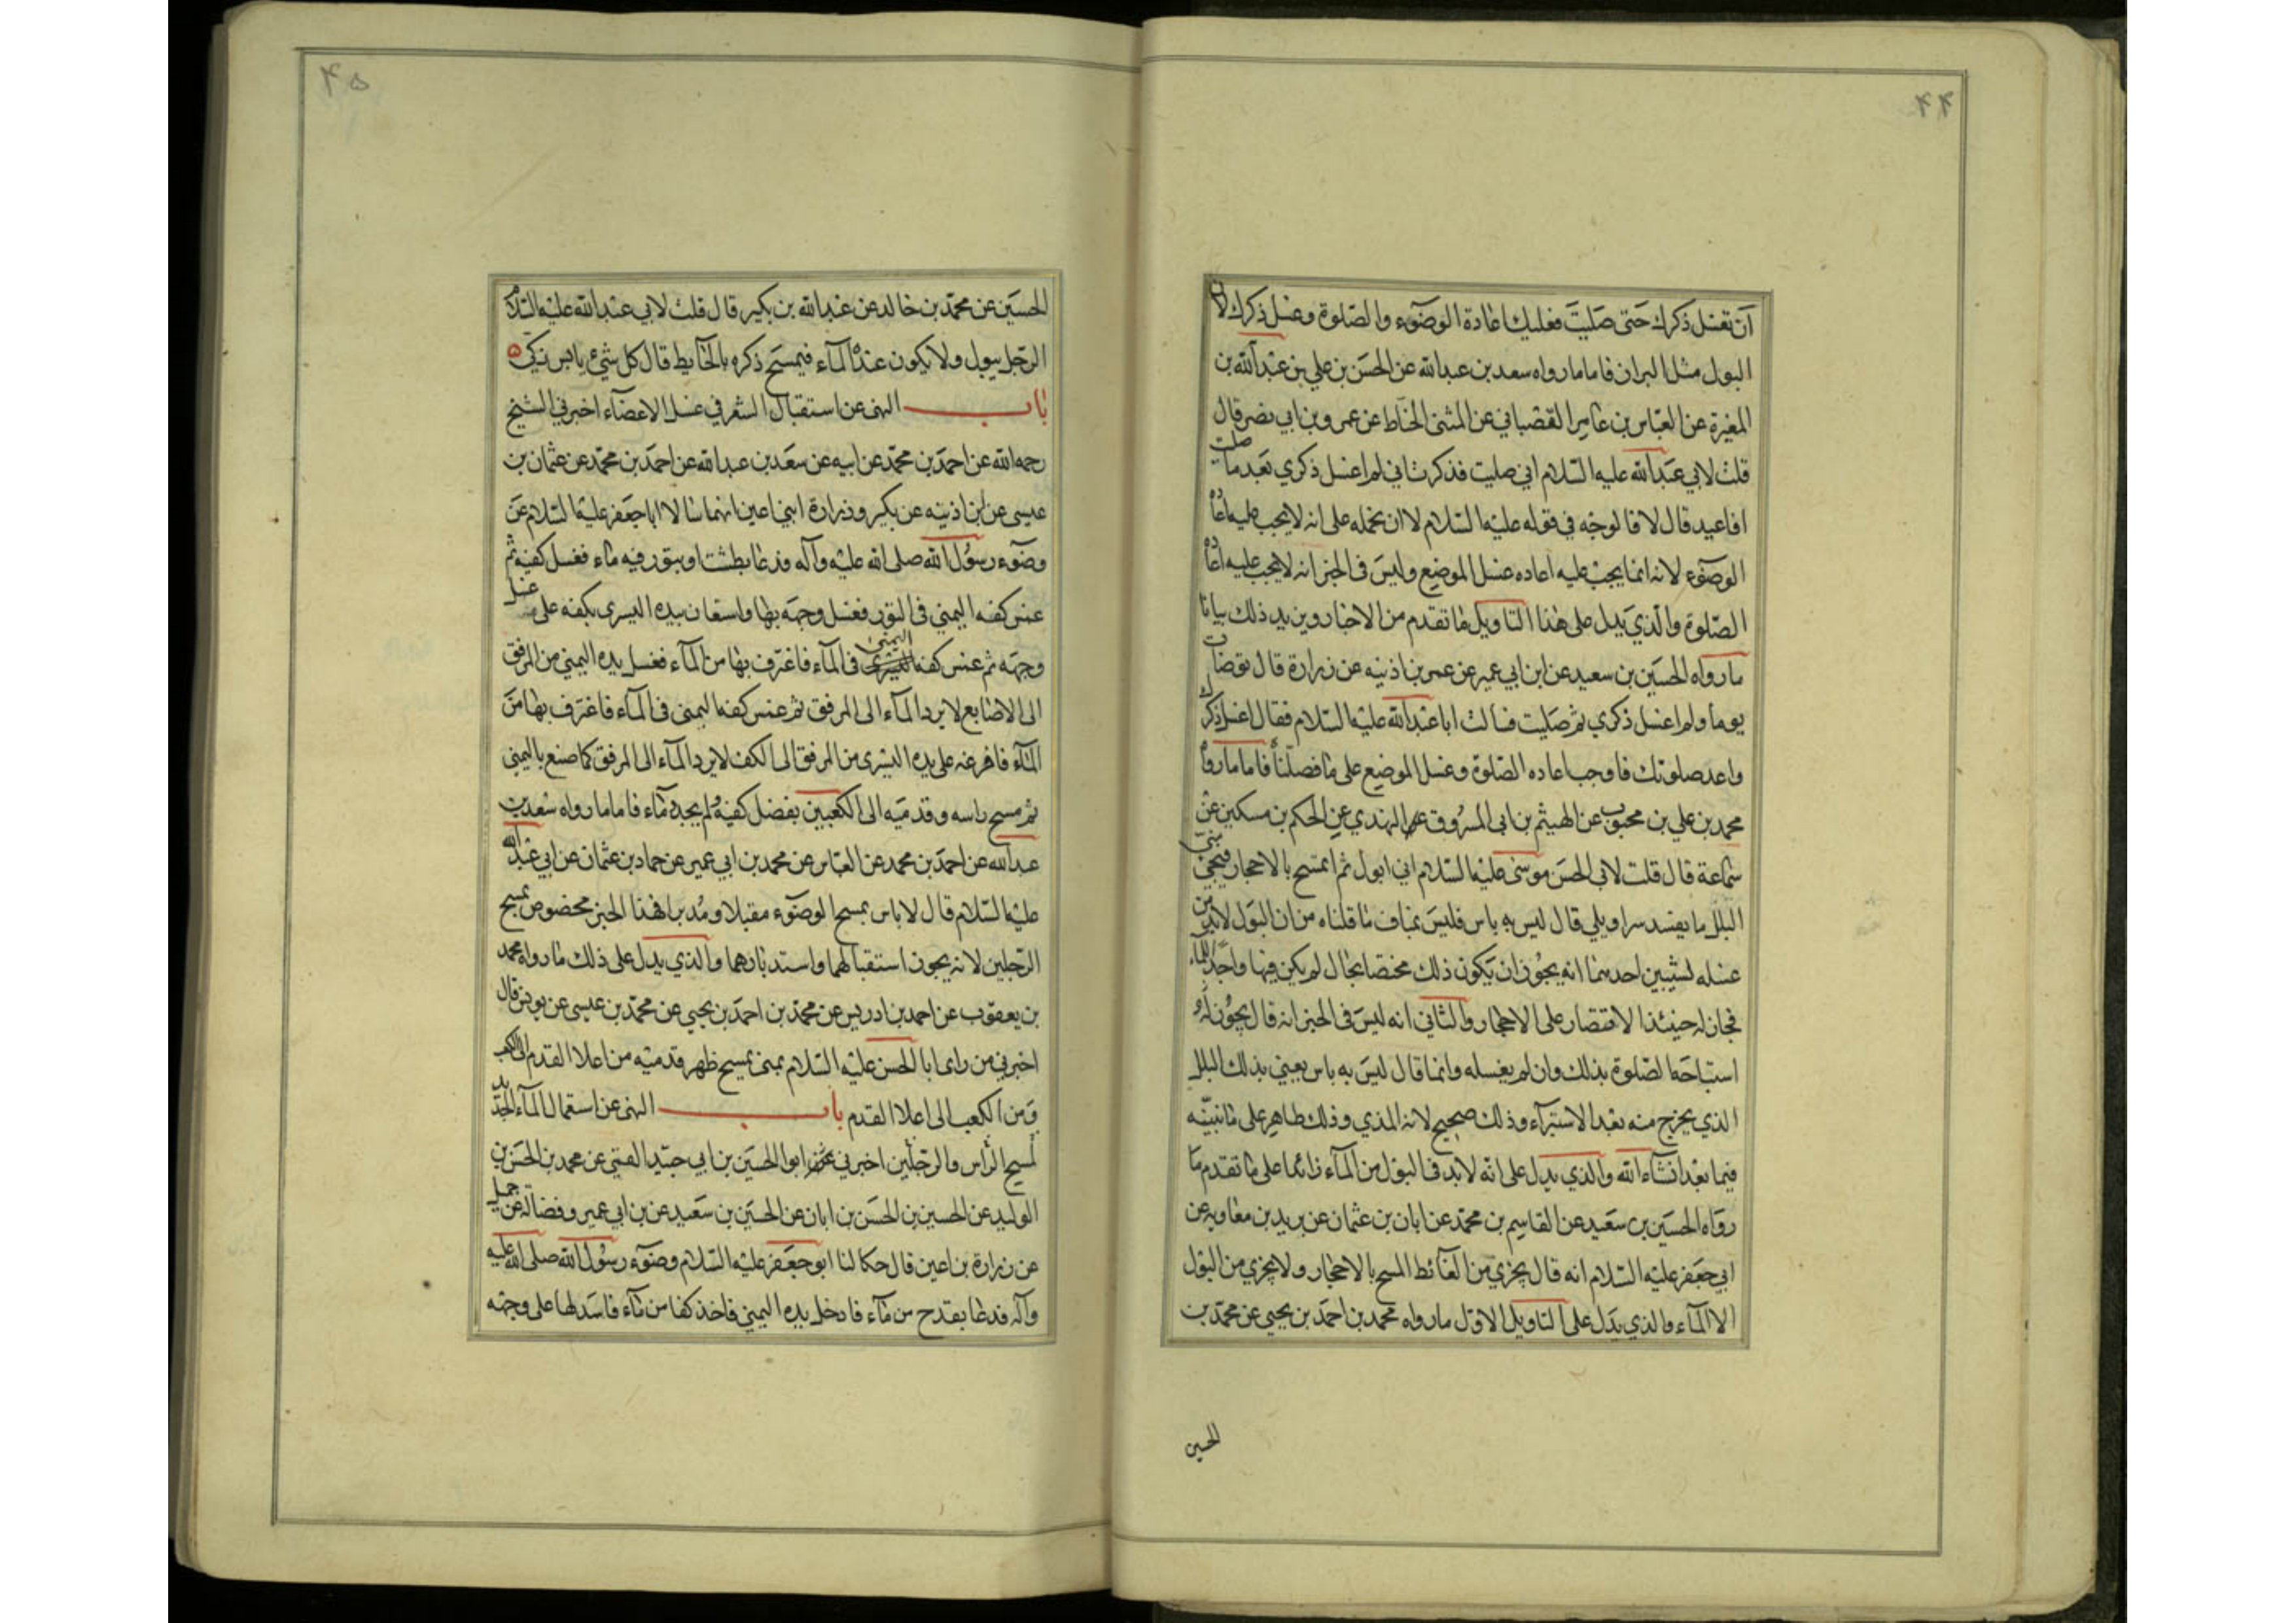 ۴۴
أن تغسل ذكرك حتى صليت فعليك اعادة الوضوء والصلوة وغسل ذكرك لان
البول مثل البراز فاما ما رواه سعد بن عبدالله عن الحسن بن علي بن عبدالله بن
المغيرة عن العباس بن عامر القصباني عن المثنى الحناط عن عمرو بن ابي نصر قال
قلت لابي عبدالله عليه السلام اني صليت فذكرت اني لم اغسل ذكري بعد ما صليت
افاعيد قال لا فالوجه في قوله عليه السلام لا ان نحمله على انه لا يجب عليه اعاده
الوضوء لانه انما يجب عليه اعاده غسل الموضع وليس في الخبر انه لا يجب عليه اعاده
الصلوة والذي يدل على هذا التاويل ما تقدم من الاخبار ويزيد ذلك بيانا
ما رواه الحسين بن سعيد عن ابن ابي عمير عن عمر بن اذينه عن زرارة قال توضات
يوما ولم اغسل ذكري ثم صليت فسألت ابا عبدالله عليه السلام فقال اغسل ذكرك
واعد صلوتك فاوجب اعاده الصلوة وغسل الموضع على ما فصلنا فاما ما رواه
محمد بن علي بن محبوب عن الهيثم بن ابي المسروق النهدي عن الحكم بن مسكين عن
سماعة قال قلت لابي الحسن موسى عليه السلام اني ابول ثم اتمسح بالاحجار فيجئ منى
البلل ما يفسد سراويلي قال ليس به باس فليس بمناف ما قلناه من ان البول لابد من
غسله لشيئين احدهما انه يجوز ان يكون ذلك مختصا بحال لم يكن فيها واجدا للماء
فجاز له حينئذ الاقتصار على الاحجار والثاني انه ليس في الخبر انه قال يجوز له
استباحة الصلوة بذلك وان لم يغسله وانما قال ليس به باس يعني بذلك البلل
الذي يخرج منه بعد الاستبرآء وذلك صحيح لانه المذي وذلك طاهر على ما نبينه
فيما بعد انشاء الله والذي يدل على انه لابد في البول من المآء زائدا على ما تقدم ما
رواه الحسين بن سعيد عن القاسم بن محمد عن ابان بن عثمان عن بريد بن معاويه عن
ابي جعفر عليه السلام انه قال يجزي من الغائط المسح بالاحجار ولا يجزي من البول
الا المآء والذي يدل على التاويل الاول ما رواه محمد بن احمد بن يحيى عن محمد بن
الحسين
۴۵
الحسين عن محمد بن خالد عن عبدالله بن بكير قال قلت لابي عبدالله عليه السلام
الرجل يبول ولا يكون عنده المآء فيمسح ذكره بالحايط قال كل شيء يابس زكي
باب النهى عن استقبال الشعر في غسل الاعضآء اخبرني الشيخ
رحمه الله عن احمد بن محمد عن ابيه عن سعد بن عبدالله عن احمد بن محمد عن عثمان بن
عيسى عن ابن اذينه عن بكير وزرارة ابني اعين انهما سالا ابا جعفر عليه السلام عن
وضوء رسول الله صلى الله عليه وآله فدعا بطشت او بتور فيه ماء فغسل كفيه ثم
غمس كفه اليمني في التور فغسل وجهه بها واستعان بيده اليسرى بكفه على غسل
وجهه ثم غمس كفه اليمنى في المآء فاغترف بها من المآء فغسل يده اليمني من المرفق
الى الاصابع لا يرد المآء الى المرفق ثم غمس كفه اليمنى في المآء فاغترف بها من
المآء فافرغه على يده اليسرى من المرفق الى الكف لا يرد المآء الى المرفق كما صنع باليمنى
ثم مسح راسه وقدميه الى الكعبين بفضل كفيه ولم يجدد مآء فاما ما رواه سعد بن
عبدالله عن احمد بن محمد عن العباس عن محمد بن ابي عمير عن حماد بن عثمان عن ابي عبدالله
عليه السلام قال لا باس بمسح الوضوء مقبلا ومدبرا فهذا الخبر مخصوص بمسح
الرجلين لانه يجوز استقبالهما واستدبارهما والذي يدل على ذلك ما رواه محمد
بن يعقوب عن احمد بن ادريس عن محمد بن احمد بن يحيى عن محمد بن عيسى عن يونس قال
اخبرني من راى ابا الحسن عليه السلام بمنى يمسح ظهر قدميه من اعلا القدم الى الكعب
ومن الكعب الى اعلا القدم باب النهى عن استعمال المآء الجديد
لمسح الرأس والرجلين اخبرني ابو الحسين بن ابي جيد القمي عن محمد بن الحسن بن
الوليد عن الحسين بن الحسن بن ابان عن الحسين بن سعيد عن بن ابي عمير وفضالة عن جميل
عن زرارة بن اعين قال حكا لنا ابو جعفر عليه السلام وضوء رسول الله صلى الله عليه
وآله فدعا بقدح من مآء فادخل يده اليمني فاخذ كفا من مآء فاسدلها على وجهه